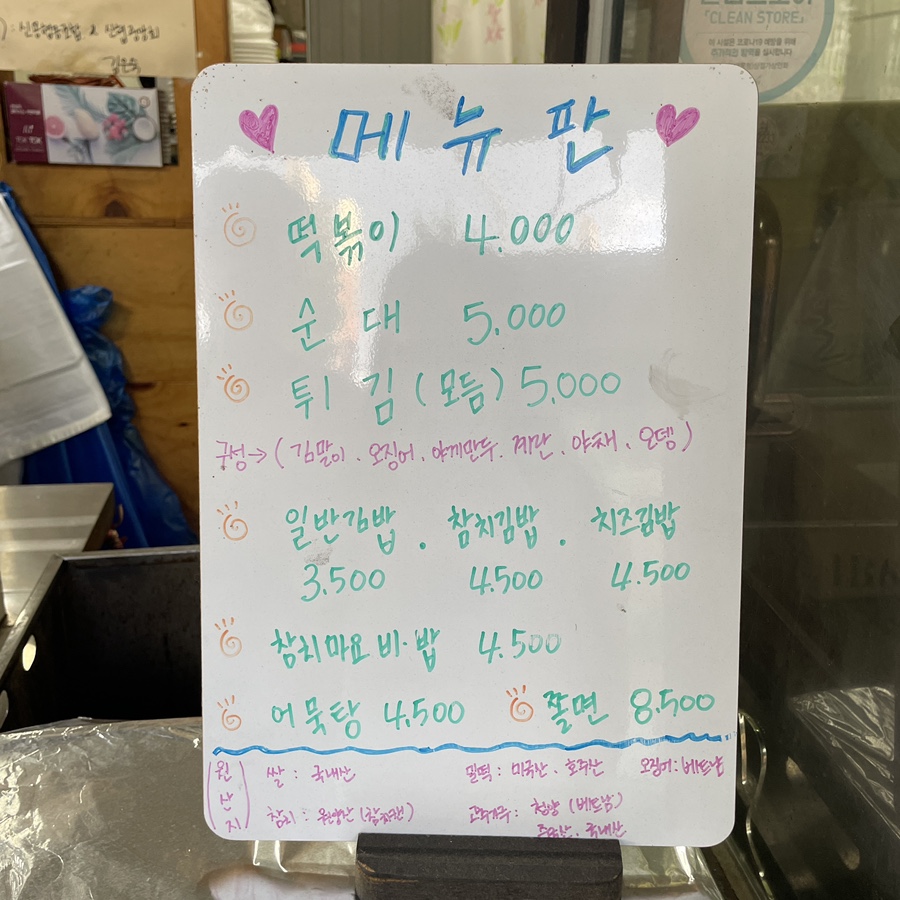 신용협동조합 &
김은숙
CLEAN STORE」
이 시설은 코로나19 예방을 위해
메뉴판
떡볶이 4.000
순대 5,000
튀김(모듬) 5,000
구성→(김말이. 오징어. 야끼만두. 계란. 야채. 오뎅)
일반김밥. 참치김밥. 치즈김밥
3.500 4.500 4.500
참치마요 비·밥 4.500
어묵탕 4,500 쫄면 8.500
(원산지) 쌀: 국내산 밀떡: 미국산. 호주산 오징어: 베트남
참치: 원양산 (참치캔) 고춧가루: 청양 (베트남)
중국산. 국내산